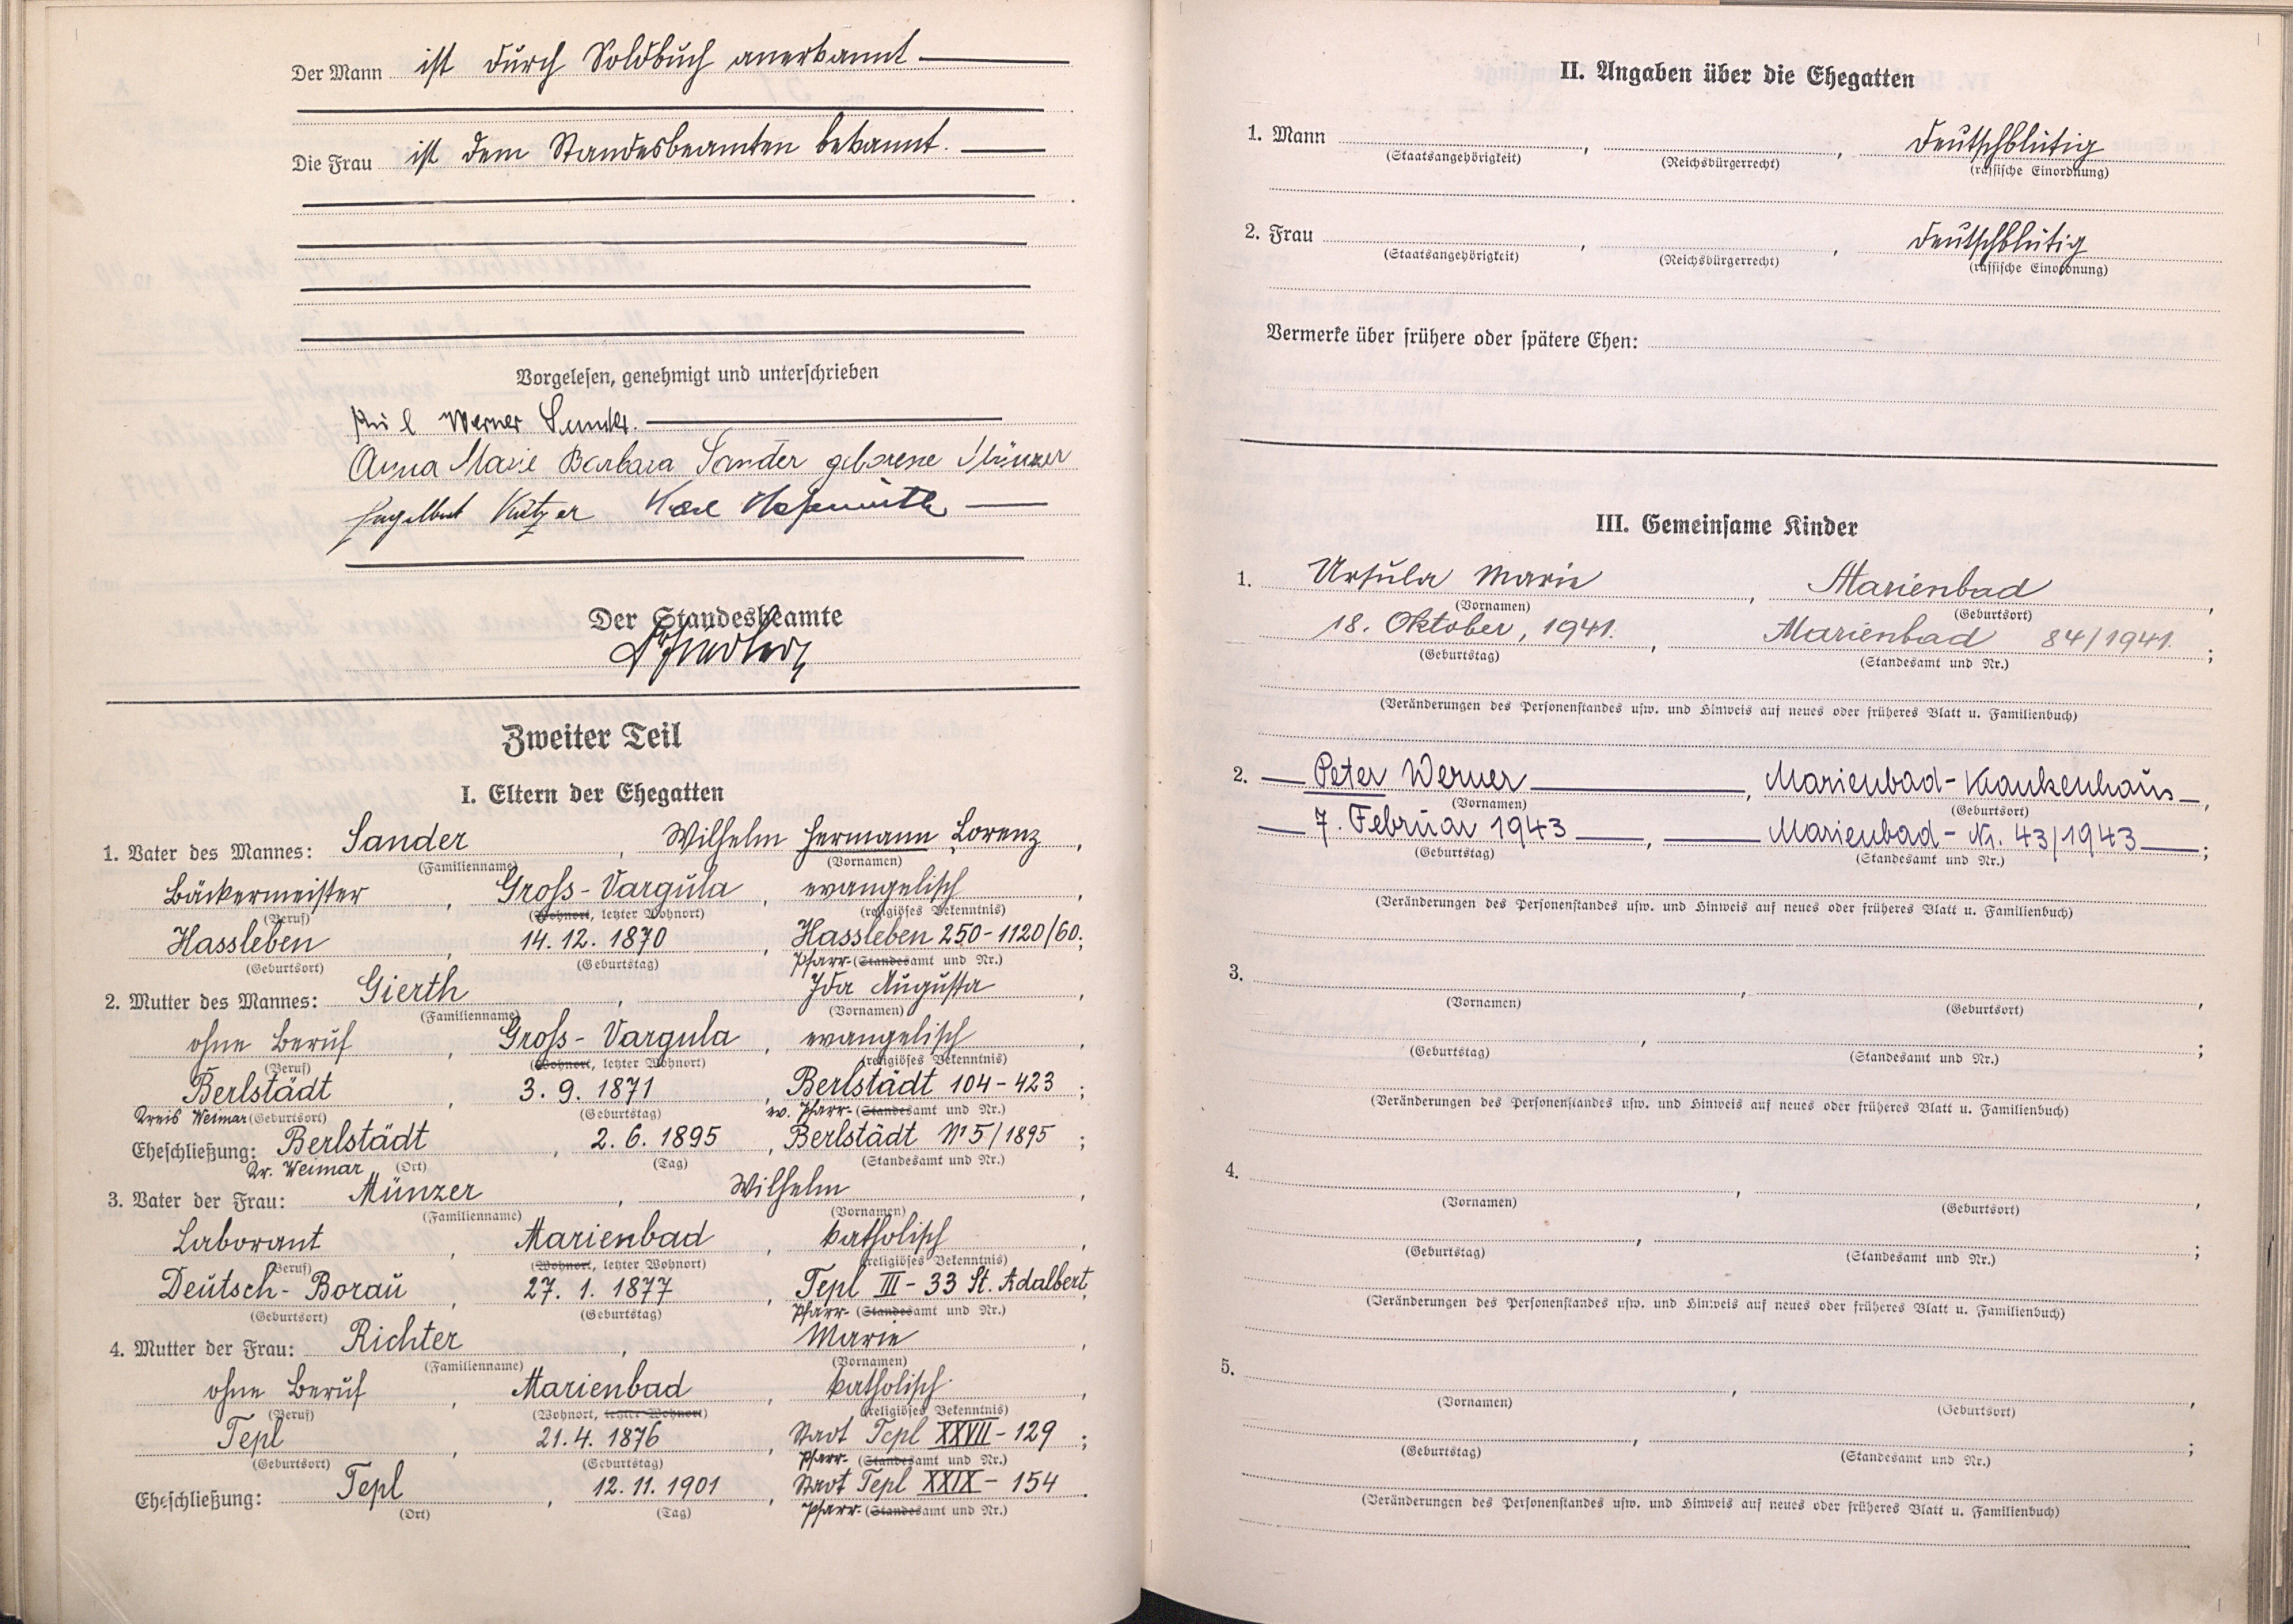 Der Mann ist durch Soldbuch anerkannt
Die Frau ist dem Standesbeamten bekannt.
Vorgelesen, genehmigt und unterschrieben
Werner Sander.
Anna Marie Barbara Sander geborene Münzer
Engelbert Kutzer Karl
Der Standesbeamte
Zweiter Teil
I. Eltern der Ehegatten
1. Vater des Mannes: Sander, Wilhelm Hermann Lorenz,
(Familienname) (Vornamen)
Bäckermeister, Gross-Vargula, evangelisch,
(Beruf) (Wohnort, letzter Wohnort) (religiöses Bekenntnis)
Hassleben, 14.12.1870, Hassleben 250-1120/60;
(Geburtsort) (Geburtstag) Pfarr-(Standesamt und Nr.)
2. Mutter des Mannes: Gierth, Ida Augusta,
(Familienname) (Vornamen)
ohne Beruf, Gross-Vargula, evangelisch,
(Beruf) (Wohnort, letzter Wohnort) (religiöses Bekenntnis)
Berlstädt, 3.9.1871, Berlstädt 104-423;
Kreis Weimar (Geburtsort) (Geburtstag) ev. Pfarr-(Standesamt und Nr.)
Eheschließung: Berlstädt, 2.6.1895, Berlstädt Nr 5/1895;
Kr. Weimar (Ort) (Tag) (Standesamt und Nr.)
3. Vater der Frau: Münzer, Wilhelm,
(Familienname) (Vornamen)
Laborant, Marienbad, katholisch,
(Beruf) (Wohnort, letzter Wohnort) (religiöses Bekenntnis)
Deutsch-Borau, 27.1.1877, Tepl III-33 St. Adalbert
(Geburtsort) (Geburtstag) Pfarr-(Standesamt und Nr.)
4. Mutter der Frau: Richter, Marie,
(Familienname) (Vornamen)
ohne Beruf, Marienbad, katholisch,
(Beruf) (Wohnort, letzter Wohnort) (religiöses Bekenntnis)
Tepl, 21.4.1876, Stadt Tepl XXVII-129;
(Geburtsort) (Geburtstag) Pfarr-(Standesamt und Nr.)
Eheschließung: Tepl, 12.11.1901, Stadt Tepl XXIX-154.
(Ort) (Tag) Pfarr-(Standesamt und Nr.)
II. Angaben über die Ehegatten
1. Mann , , deutschblütig
(Staatsangehörigkeit) (Reichsbürgerrecht) (rassische Einordnung)
2. Frau , , deutschblütig
(Staatsangehörigkeit) (Reichsbürgerrecht) (rassische Einordnung)
Vermerke über frühere oder spätere Ehen:
III. Gemeinsame Kinder
1. Ursula Marie, Marienbad,
(Vornamen) (Geburtsort)
18. Oktober, 1941., Marienbad 84/1941.;
(Geburtstag) (Standesamt und Nr.)
(Veränderungen des Personenstandes usw. und Hinweis auf neues oder früheres Blatt u. Familienbuch)
2. Peter Werner, Marienbad-Krankenhaus,
(Vornamen) (Geburtsort)
7. Februar 1943, Marienbad-Nr. 43/1943;
(Geburtstag) (Standesamt und Nr.)
(Veränderungen des Personenstandes usw. und Hinweis auf neues oder früheres Blatt u. Familienbuch)
3. , ,
(Vornamen) (Geburtsort)
, ;
(Geburtstag) (Standesamt und Nr.)
(Veränderungen des Personenstandes usw. und Hinweis auf neues oder früheres Blatt u. Familienbuch)
4. , ,
(Vornamen) (Geburtsort)
, ;
(Geburtstag) (Standesamt und Nr.)
(Veränderungen des Personenstandes usw. und Hinweis auf neues oder früheres Blatt u. Familienbuch)
5. , ,
(Vornamen) (Geburtsort)
, ;
(Geburtstag) (Standesamt und Nr.)
(Veränderungen des Personenstandes usw. und Hinweis auf neues oder früheres Blatt u. Familienbuch)